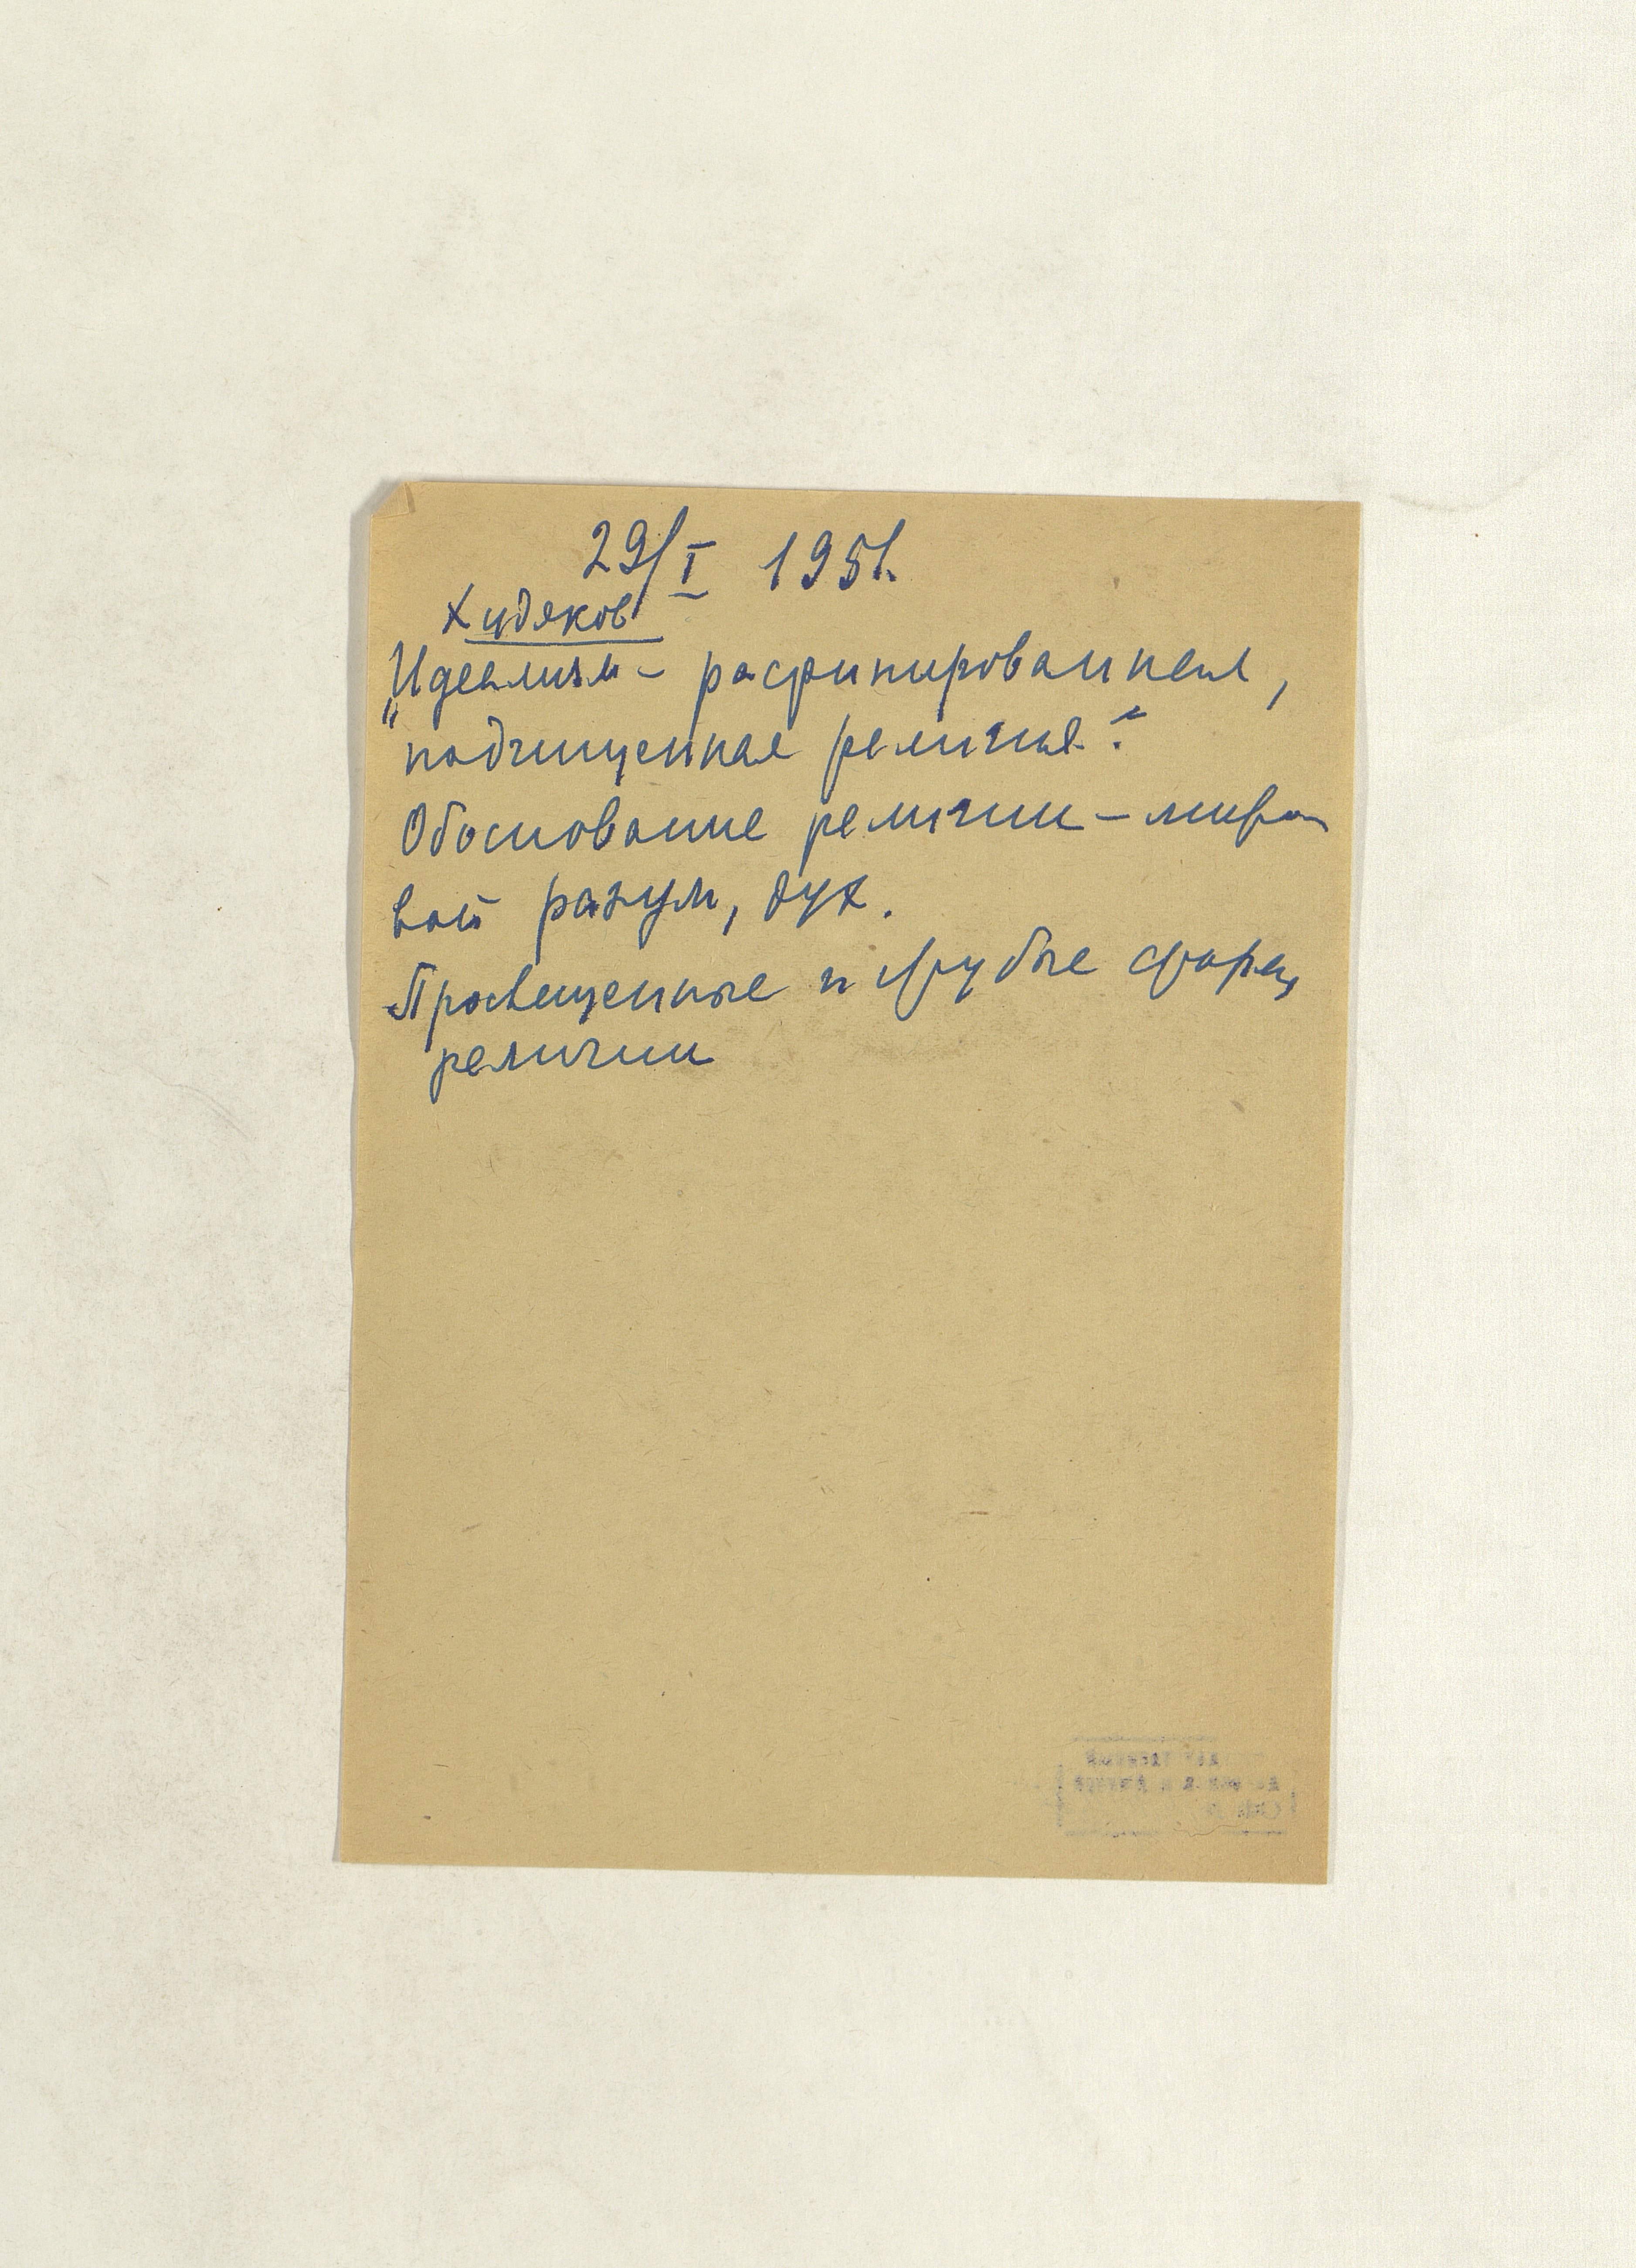 29/I 1951.
Худяков
"Идеализм – рафинированная,
подчищенная религия".
Обоснование религии – миро
вой разум, дух.
Просвещенные и грубые формы
религии